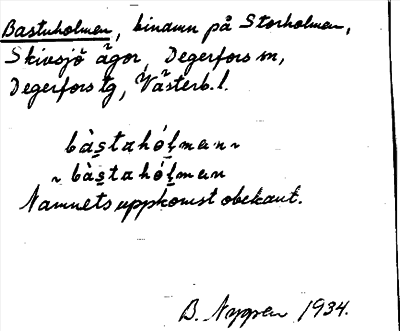 Bastuholmen, binamn på Storholmen,
Skivsjö ägor, Degerfors sn,
Degerfors tg, Västerb. l.
bàs̱tahóḻman ~
~ bàs̱tahóḻman
Namnets uppkomst obekant.
B. Nygren 1934.